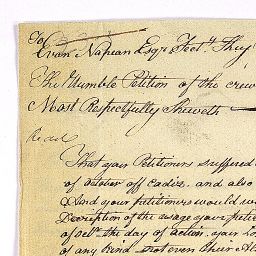 To
Evan Nepean Esqr Secty
The Humble Petition of the crew
Most Respectfully Sheweth
Read
That your Petitioners suffered
of october off cadiz, and also
And your petitioners would
Decription of the usage your
of the day of action, your
of any kind not even their